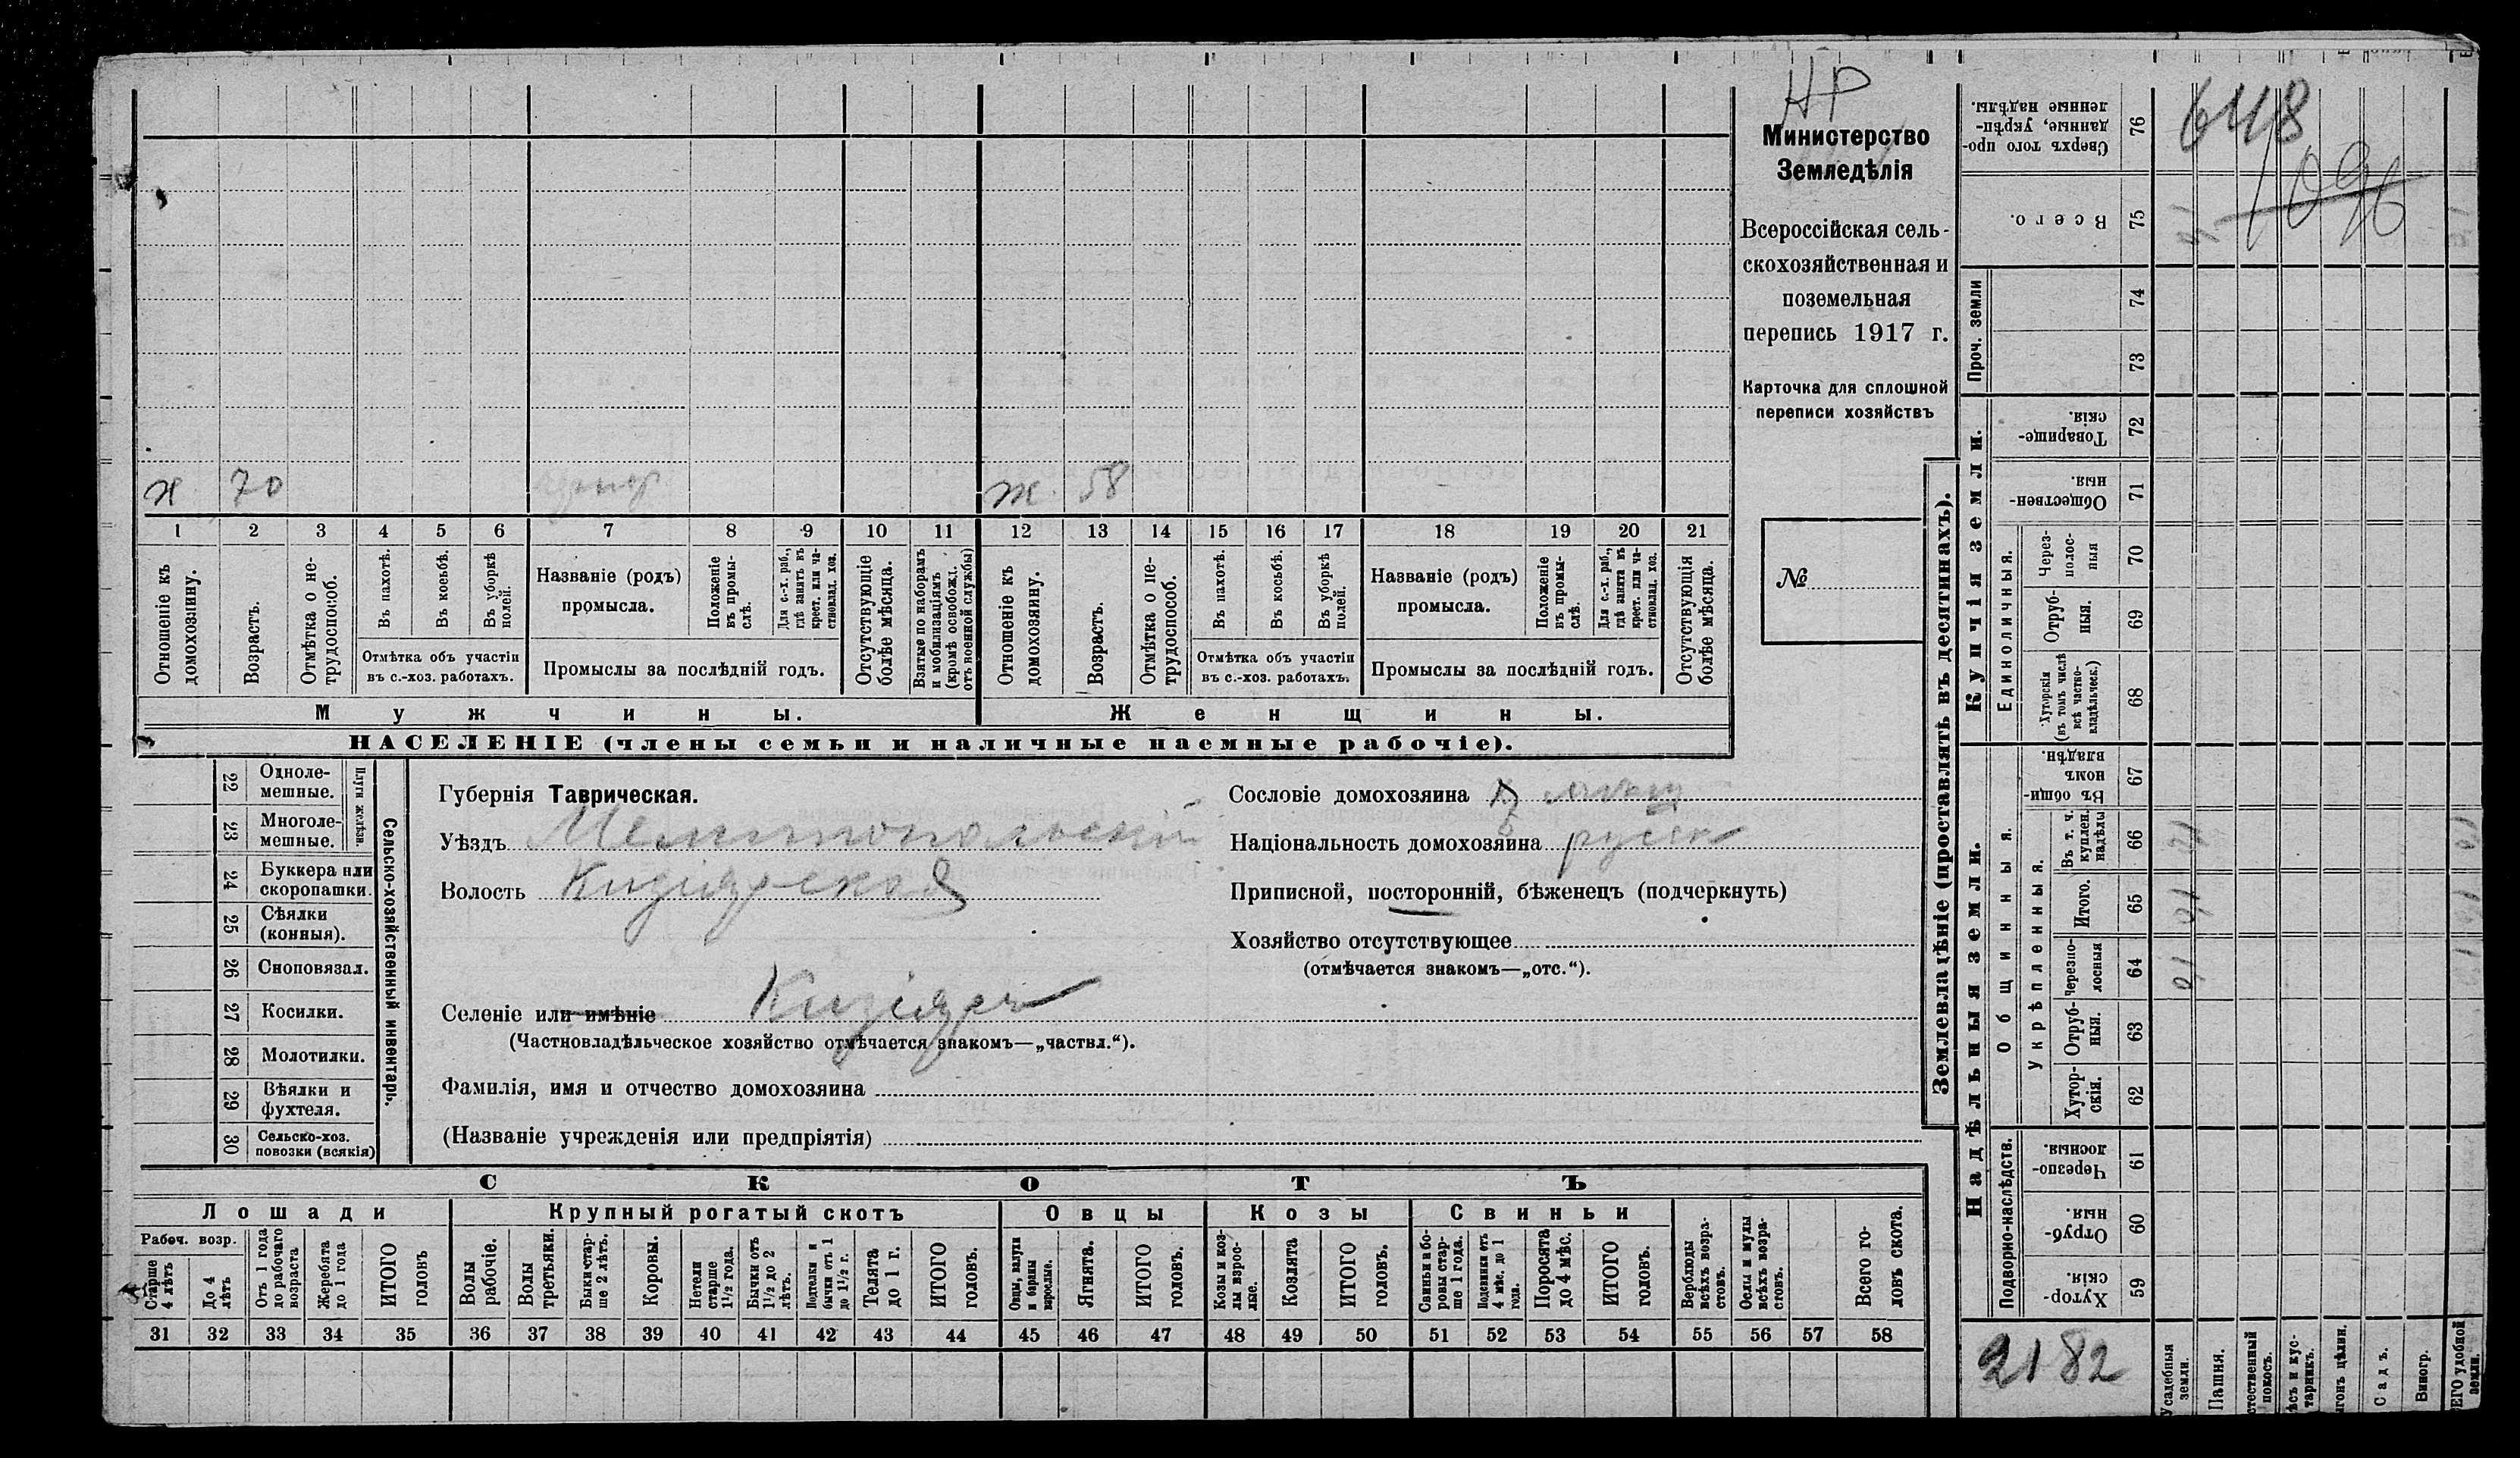 НР
Министерство
Земледѣлія
Всероссійская сель-
скохозяйственная и
поземельная
перепись 1917 г.
Карточка для сплошной
переписи хозяйствъ
№
х 70
ж. 58
1 2 3 4 5 6 7 8 9 10 11 12 13 14 15 16 17 18 19 20 21
Отношеніе къ домохозяину.
Возрастъ.
Отмѣтка о не-
трудоспособ.
Въ пахотѣ.
Въ косьбѣ.
Въ уборкѣ полей.
Отмѣтка объ участіи
въ с.-хоз. работахъ.
Названіе (родъ)
промысла.
Положеніе въ промы-
слѣ.
Для с.-х. раб., гдѣ занятъ въ крест. или ча-
стновлад. хоз.
Промыслы за послѣдній годъ.
Отсутствующіе болѣе мѣсяца.
Взятые по наборамъ и мобилизаціямъ (кромѣ освобожд. отъ военной службы)
Отношеніе къ домохозяину.
Возрастъ.
Отмѣтка о не-
трудоспособ.
Въ пахотѣ.
Въ косьбѣ.
Въ уборкѣ полей.
Отмѣтка объ участіи
въ с.-хоз. работахъ.
Названіе (родъ)
промысла.
Положеніе въ промы-
слѣ.
Для с.-х. раб., гдѣ занята въ крест. или ча-
стновлад. хоз.
Промыслы за послѣдній годъ.
Отсутствующія болѣе мѣсяца.
Мужчины.
Женщины.
НАСЕЛЕНІЕ (члены семьи и наличные наемные рабочіе).
Сельско-хозяйственный инвентарь.
Плуги желѣзн.
22 Одноле-
мешные.
23 Многоле-
мешные.
24 Буккера или
скоропашки.
25 Сѣялки
(конныя).
26 Сноповязал.
27 Косилки.
28 Молотилки.
29 Вѣялки и
фухтеля.
30 Сельско-хоз.
повозки (всякія)
Губернія Таврическая.
Уѣздъ Мелитопольскій
Волость Кизіярская
Селеніе или имѣніе Кизіяръ
(Частновладѣльческое хозяйство отмѣчается знакомъ—„частвл.“).
Фамилія, имя и отчество домохозяина
(Названіе учрежденія или предпріятія)
Сословіе домохозяина
Національность домохозяина русск
Приписной, посторонній, бѣженецъ (подчеркнуть)
Хозяйство отсутствующее
(отмѣчается знакомъ—„отс.“).
СКОТЪ
Лошади
Крупный рогатый скотъ
Овцы
Козы
Свиньи
Рабоч. возр.
Старше 4 лѣтъ
До 4 лѣтъ
Отъ 1 года до рабочаго возраста
Жеребята до 1 года
ИТОГО головъ
Волы рабочіе.
Волы третьяки.
Быки стар-
ше 2 лѣтъ.
Коровы.
Нетели старше 1½ года.
Бычки отъ 1½ до 2 лѣтъ.
Подтелки и бычки отъ 1 до 1½ г.
Телята до 1 г.
ИТОГО головъ.
Овцы, валухи и бараны взрослые.
Ягнята.
ИТОГО головъ.
Козы и коз-
лы взрос-
лые.
Козлята
ИТОГО головъ.
Свиньи и бо-
ровы стар-
ше 1 года.
Подсвинки отъ 4 мѣс. до 1 года.
Поросята до 4 мѣс.
ИТОГО головъ.
Верблюды всѣхъ возра-
стовъ.
Ослы и мулы всѣхъ возра-
стовъ.
Всего го-
ловъ скота.
31 32 33 34 35 36 37 38 39 40 41 42 43 44 45 46 47 48 49 50 51 52 53 54 55 56 57 58
Землевладѣніе (проставлять въ десятинахъ).
648
1096
76 Сверхъ того про-
данные, укрѣп-
ленные надѣлы.
75 Всего.
Проч. земли
74
73
Купчія земли.
72 Товарище-
скія.
71 Обществен-
ныя.
Единоличныя.
70 Через-
полос-
ныя
69 Отруб-
ныя.
68 Хуторскія
(въ томъ числѣ
всѣ частно-
владѣльческ.)
Надѣльныя земли.
Общинныя.
67 Въ общи-
номъ
владѣн.
Укрѣпленныя.
66 Въ т. ч.
куплен.
надѣлы
65 Итого.
64 Черезпо-
лосныя
63 Отруб-
ныя.
62 Хутор-
скія.
Подворно-наслѣдств.
61 Черезпо-
лосныя
60 Отруб-
ныя.
59 Хутор-
скія.
2182
Усадебныя земли.
Пашня.
стественный покосъ.
ѣсъ и кус-
тарникъ.
ыгонъ цѣлин.
Садъ.
Виногр.
ЕГО удобной земли.